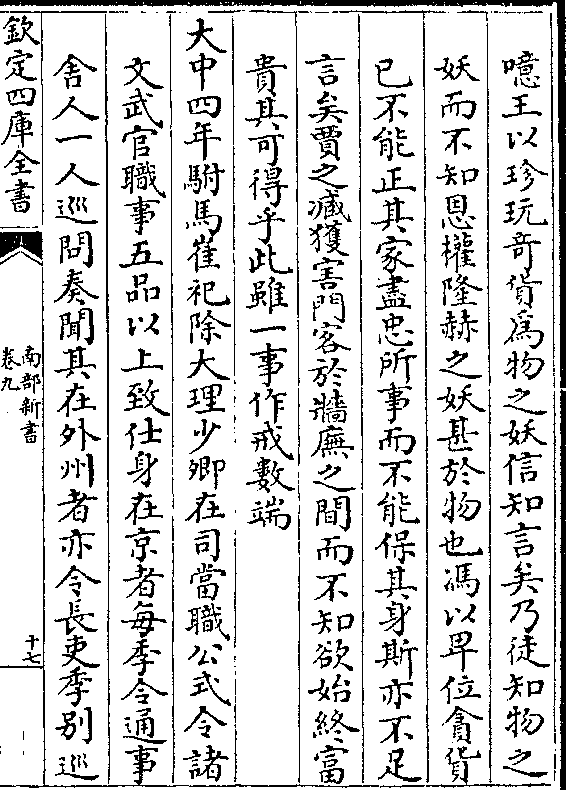 噫王以珍玩竒貨爲物之妖信知言矣乃徒知物之
妖而不知恩權隆赫之妖甚於物也馮以卑位貪貨
已不能正其家盡忠所事而不能保其身斯亦不足
言矣賈之臧獲害門客於牆廡之間而不知欲始終富
貴其可得乎此雖一事作戒數端
大中四年駙馬崔䃅除大理少卿在司當職公式令諸
文武官職事五品以上致仕身在京者每季令通事
舍人一人巡問奏聞其在外州者亦令長吏季別巡
欽定四庫全書
南部新書
卷九
十七